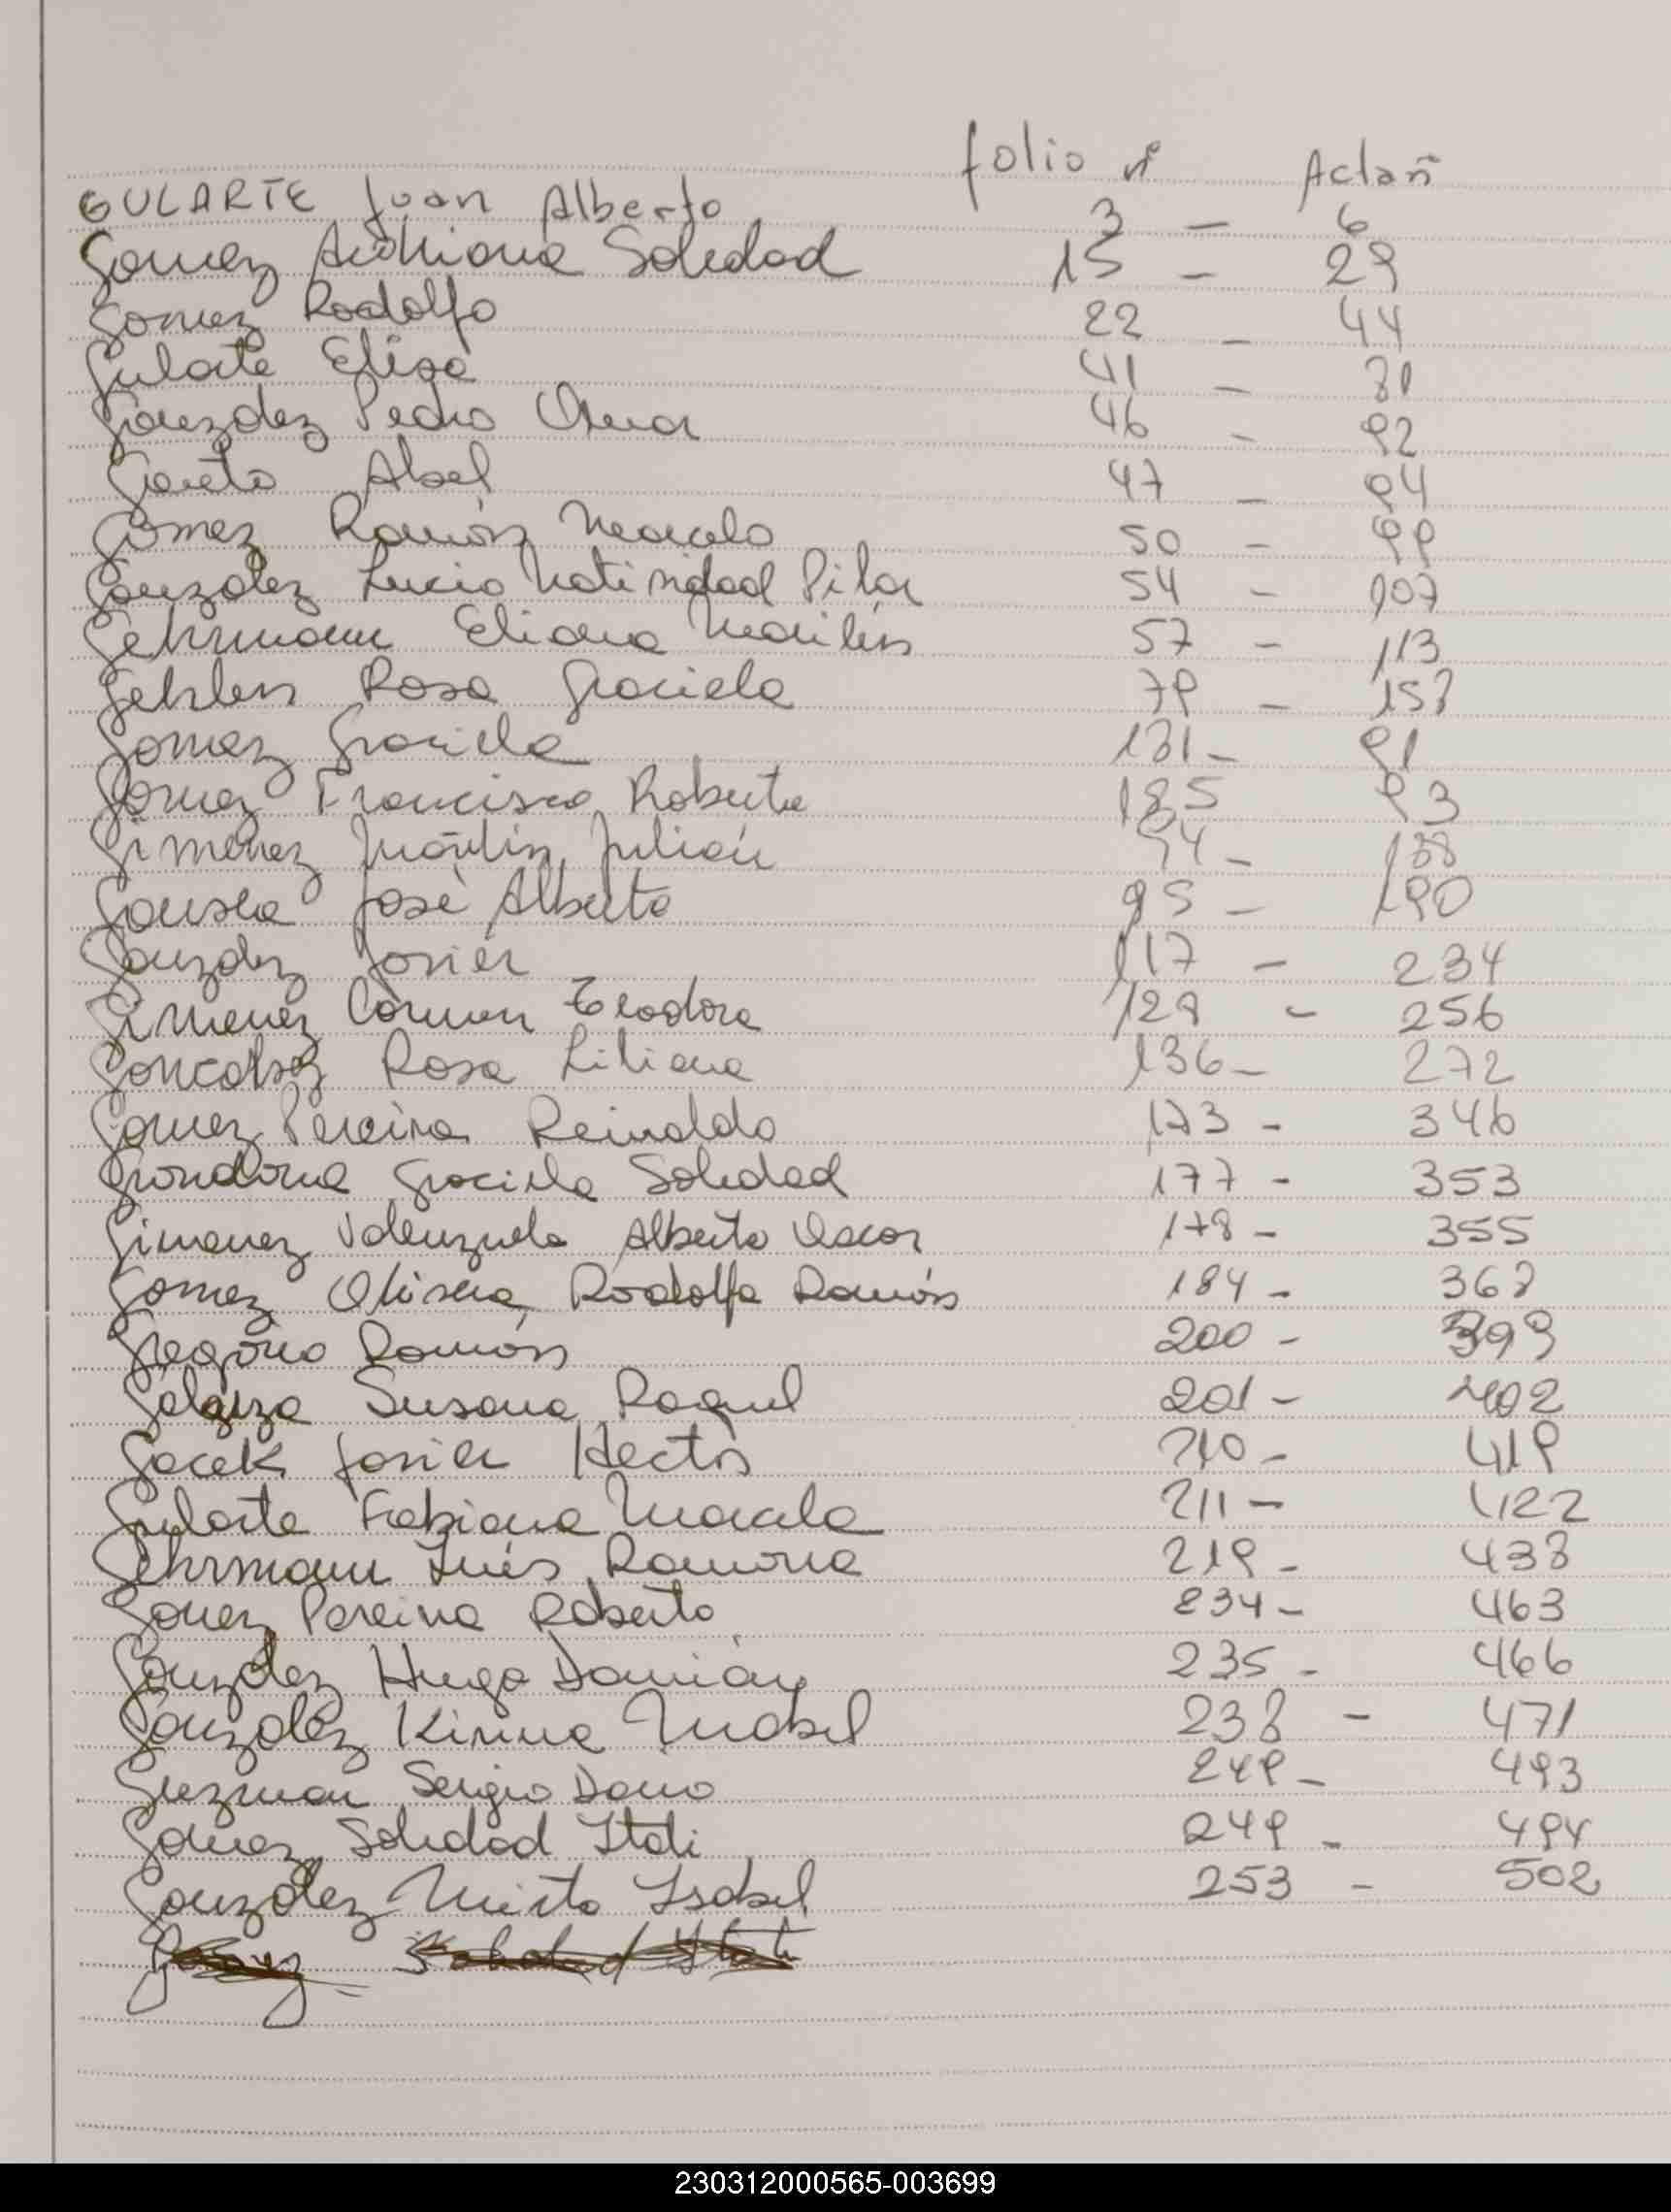 folio nº Acta nº
GULARTE Juan Alberto 3 - 6
Gomez Adriana Soledad 15 - 29
Gomez Rodolfo 22 - 44
Gularte Elisa 41 - 81
Gonzalez Pedro Omar 46 - 92
Abel 47 - 94
Gomez Ramón Marcelo 50 - 99
Gonzalez Lucia Natividad Pilar 54 - 107
Gehrmann Eliana Marilin 57 - 113
Gehlen Rosa Graciela 79 - 158
Gomez Graciela 181 - 91
Gomez Francisco Roberto 185 93
Gimenez Martín Julián 94 - 188
José Alberto 95 - 190
Gonzalez Javier 117 - 234
Gimenez Carmen Teodora 128 - 256
Goncalvez Rosa Liliana 136 - 272
Gomez Pereira Reinaldo 173 - 346
Grondona Graciela Soledad 177 - 353
Gimenez Valenzuela Alberto Oscar 178 - 355
Gomez Olivera Rodolfo Ramón 184 - 368
Gregorio Ramón 200 - 399
Galarza Susana Raquel 201 - 402
Gacek Javier Hector 210 - 419
Gularte Fabiana Marcela 211 - 422
Gehrmann Inés Ramona 219 - 438
Gomez Pereira Roberto 234 - 463
Gonzalez Hugo Damián 235 - 466
Gonzalez Mabel 238 - 471
Guzman Sergio Dario 249 - 493
Gomez Soledad Itati 249 - 494
Gonzalez Mirta Isabel 253 - 502
230312000565-003699